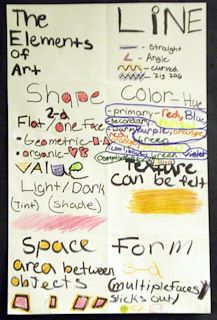 The
Elements
of
Art
LINE
- Straight
Angle
- curved
- zig zag
Shape
2-d
Flat/One Face
- Geometric
- organic
Color-Hue
- primary-red, Blue,
- secondary
purple, orange
green
violet
VALUE
Light/Dark
(Tint) (Shade)
Texture
can be felt
Space
area between
objects
Form
3-d
(multiple faces/
sticks out)